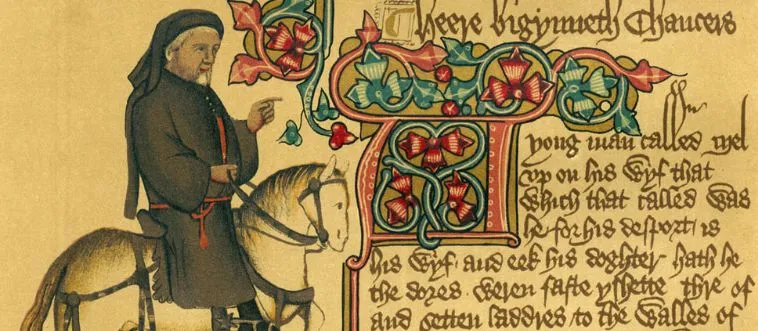 Heere bigynneth Chaucers
A
yong man called Mel
vp on his wyf that
which that called was
he for his desport is
his wyf and eek his doghter hath he
the dores weren faste yshette thre of
and setten laddres to the walles of